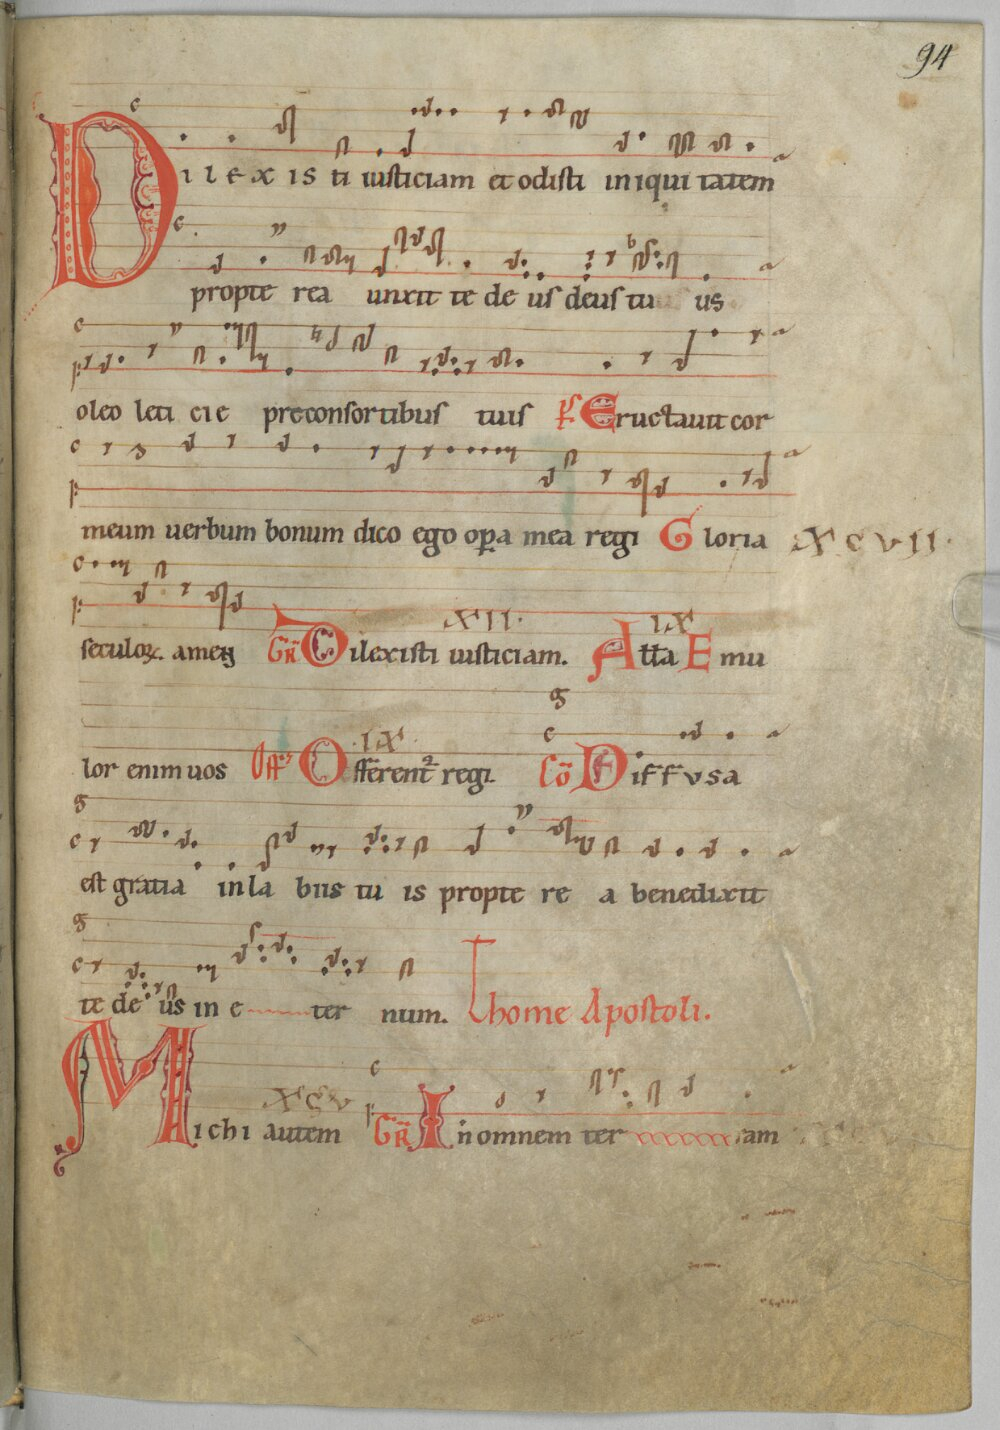 94
Dilexisti iusticiam et odisti iniquitatem
propterea unxit te deus deus tuus
oleo leticie preconsortibus tuis Ps Eructauit cor
meum uerbum bonum dico ego opa mea regi Gloria XCVII.
seculoꝝ. amen GR Dilexisti iusticiam. XII. Alla Emu IX
lor enim uos Off Offerent² regi. IX. Cō Diffusa
est gratia in labiis tuis propterea benedixit
te deus in eternum. Thome Apostoli.
Michi autem XCV GR In omnem terram